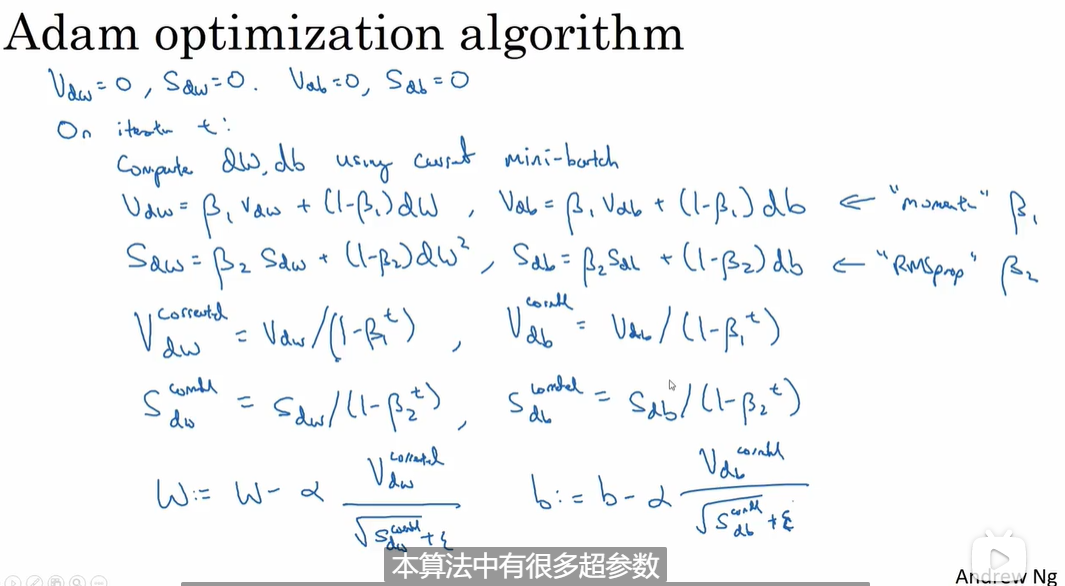 Adam optimization algorithm
V_dw = 0, S_dw = 0. V_db = 0, S_db = 0
On iteration t:
Compute dW, db using current mini-batch
V_dw = β₁ V_dw + (1-β₁) dW , V_db = β₁ V_db + (1-β₁) db ← "moment" β₁
S_dw = β₂ S_dw + (1-β₂) dW² , S_db = β₂ S_db + (1-β₂) db ← "RMSprop" β₂
V_dw^corrected = V_dw / (1-β₁^t) , V_db^corrected = V_db / (1-β₁^t)
S_dw^corrected = S_dw / (1-β₂^t) , S_db^corrected = S_db / (1-β₂^t)
W := W - α V_dw^corrected / (√S_dw^corrected + ε) b := b - α V_db^corrected / (√S_db^corrected + ε)
本算法中有很多超参数
Andrew Ng